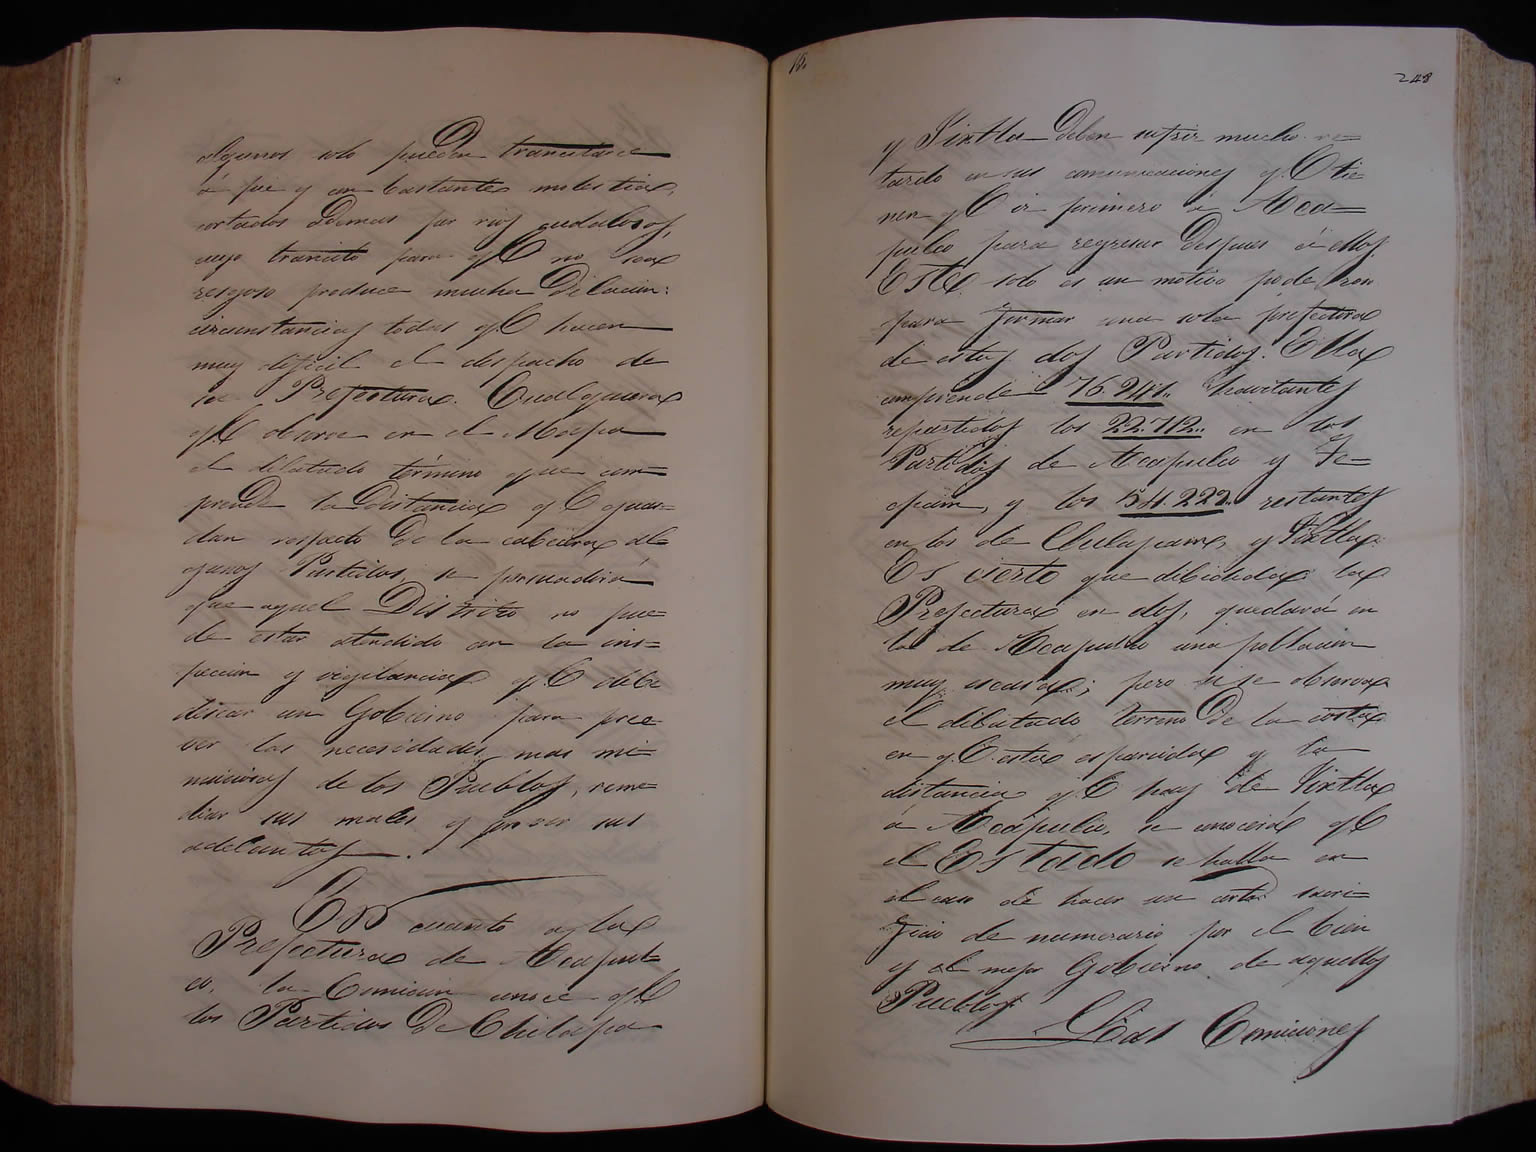 algunos solo pueden transitarse
á pie y con bastantes molestias,
cortados demas por rios cudalosos,
cuyo transito para q.e no sea
resgoso produce mucha dilacion:
circunstancias todas q.e hacen
muy dificil el despacho de
la Prefectura. Cualquiera
q.e observe en el Mapa
el dilatado término que com=
prende la distancia q.e guar=
dan respecto de la cabecera al=
gunos Partidos, se persuadirá
que aquel Distrito no pue=
de estar atendido con la ins=
peccion y vigilancia q.e debe
desear un Gobierno para pre=
ver las necesidades mas mi=
nuciosas de los Pueblos, reme=
diar sus males y proveer sus
adelantos.
En cuanto a la
Prefectura de Acapul=
co, la Comicion conoce q.e
los Partidos de Chilapa
18.
248
y Tixtla deben sufrir mucho re=
tardo en sus comunicaciones q.e tie=
nen q.e ir primero a Aca=
pulco para regresar despues á ellos.
Este solo es un motivo poderoso
para formar una sola prefectura
de estos dos Partidos. Ella
comprende 76.241. havitantes
repartidos los 22.712. en los
Partidos de Acapulco y Te=
cpam, y los 54.222. restantes
en los de Chilapam, y Tixtla.
Es cierto que dibidida la
Prefectura en dos, quedará en
la de Acapulco una poblacion
muy escasa; pero si se observa
el dilatado terreno de la costa
en q.e está esparcida y la
distancia q.e hay de Tixtla
á Acapulco, se conocerá q.e
el Estado se halla en
el caso de hacer un corto sacri=
ficio de numerario por el bien
y el mejor Gobierno de aquellos
Pueblos.
Las Comiciones